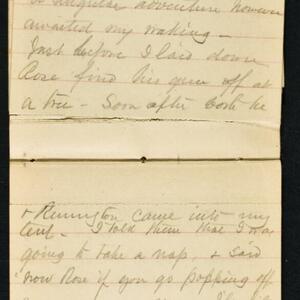 singular adventure however
awaited my waking -
Just before I laid down
Rose fired his gun off at
a tree - Soon after both he
& Remington came into my
tent - I told them that I was
going to take a nap, & said
"now Rose if you go popping off